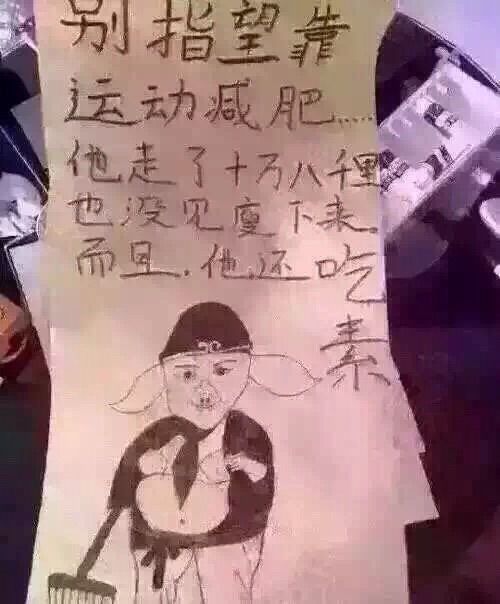 别指望靠
运动减肥.....
他走了十万八千里
也没见瘦下来.
而且.他.还吃
素